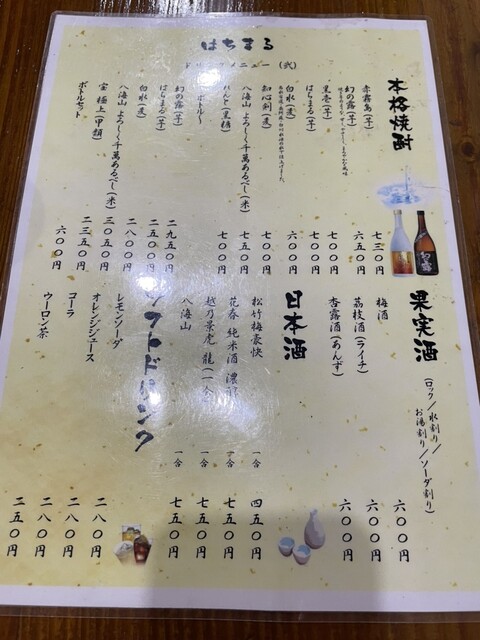 はちまる
ドリンクメニュー（弐）
本格焼酎
赤霧島（芋） 七三〇円
幻の露（芋） 六五〇円
黒壱（芋） 七〇〇円
はちまる（芋） 七〇〇円
白水（麦） 六〇〇円
知心剣（麦） 七〇〇円
八海山 よろしく千萬あるべし（米） 七五〇円
（黒糖） 七〇〇円
ボトル
幻の露（芋） 二九五〇円
はちまる（芋） 二五〇〇円
白水（麦） 二八〇〇円
八海山 よろしく千萬あるべし（米） 三〇五〇円
宝 極上（甲類） 二三五〇円
ボトルセット 六〇〇円
果実酒
（ロック／水割り／お湯割り／ソーダ割り）
梅酒 六〇〇円
茘枝酒（ライチ） 六〇〇円
杏露酒（あんず） 六〇〇円
日本酒
松竹梅豪快 一合 四五〇円
花春 純米酒 濃醇 一合 七五〇円
越乃景虎 龍 一合 七五〇円
八海山 一合 七五〇円
ソフトドリンク
レモンソーダ 二八〇円
オレンジジュース 二八〇円
コーラ 二八〇円
ウーロン茶 二五〇円